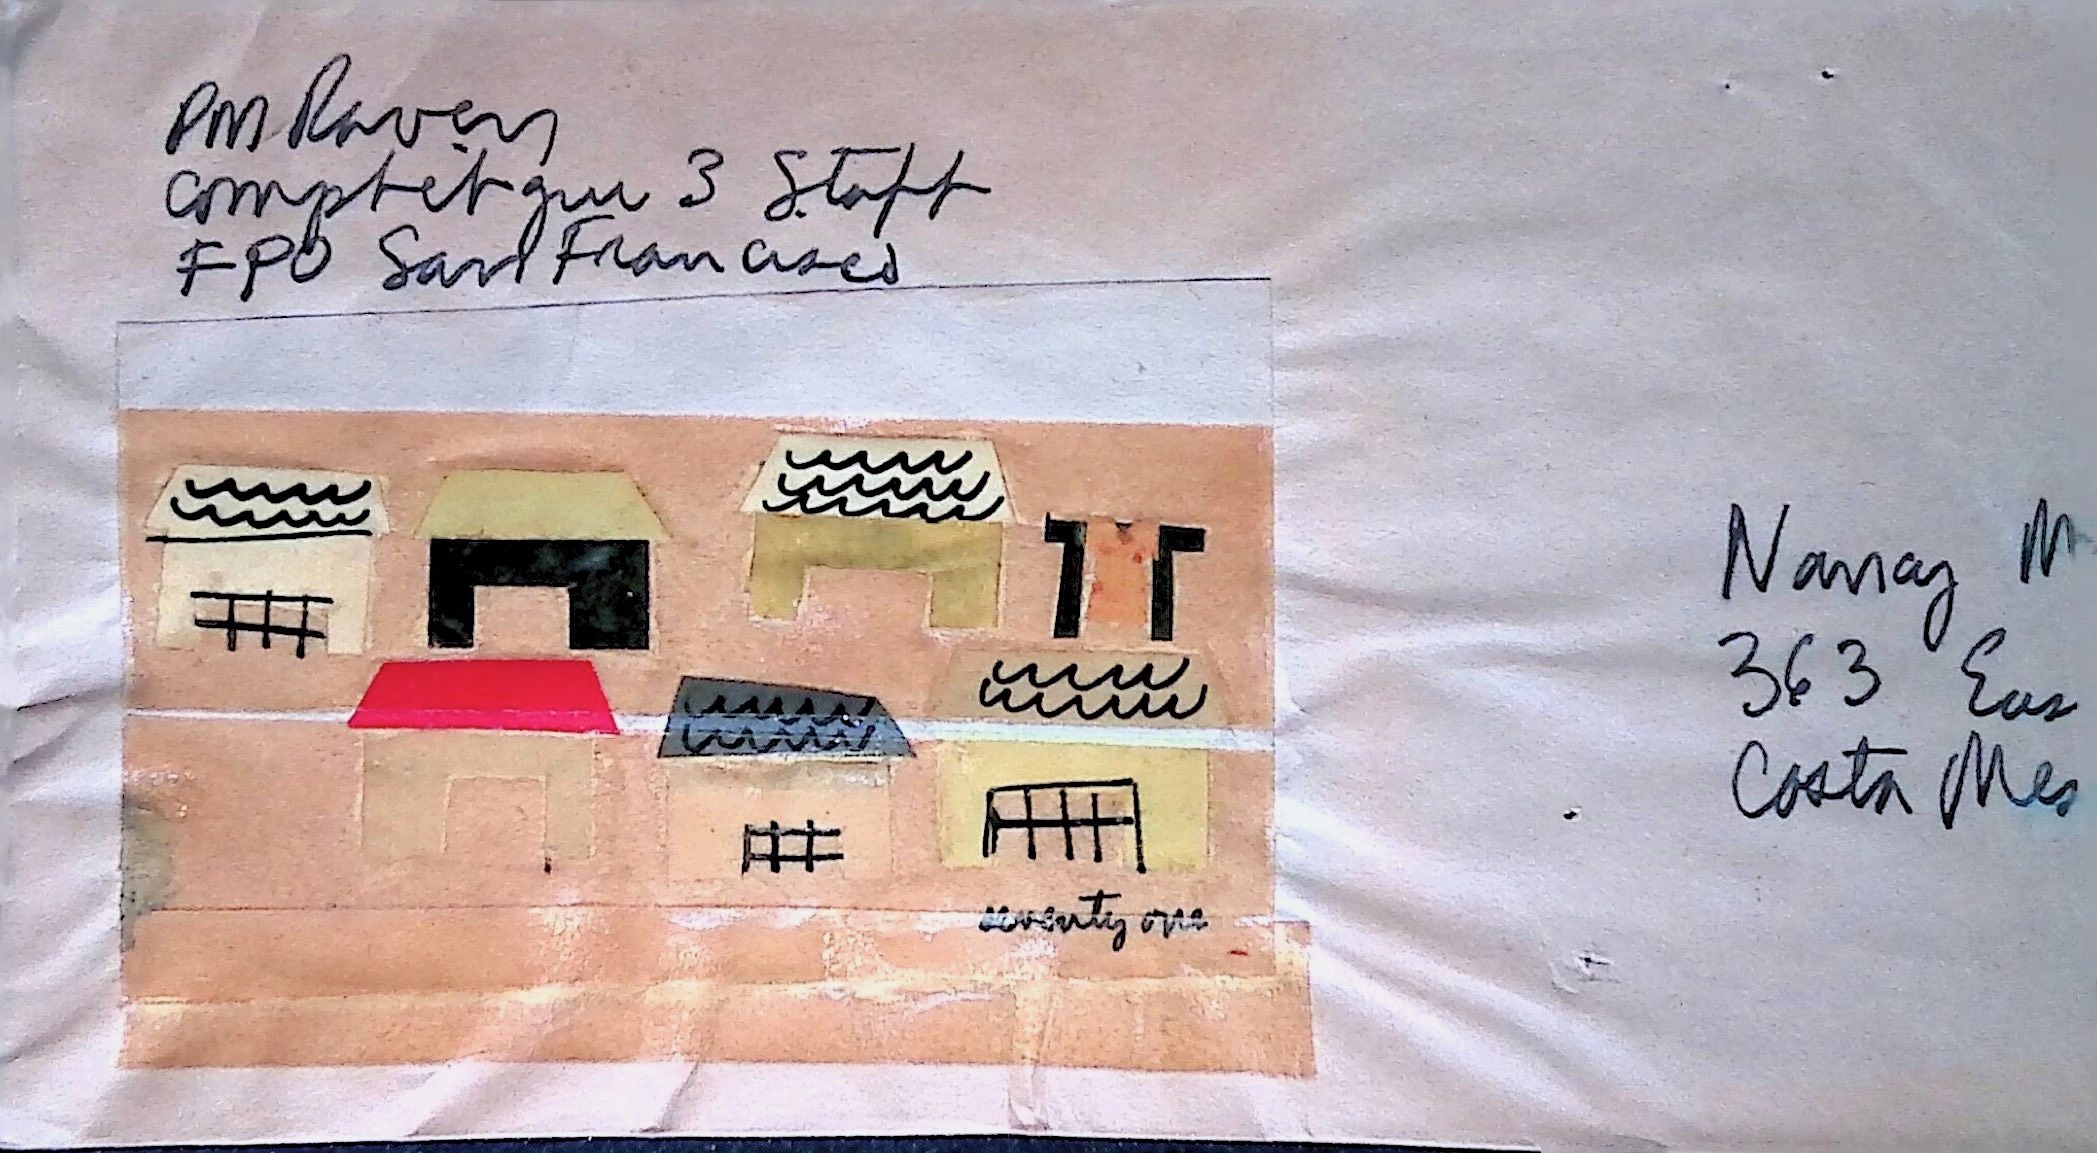 PM Raven
comphibtgru 3 Staff
FPO San Francisco
seventy one
Nancy M
363 Eas
Costa Mes